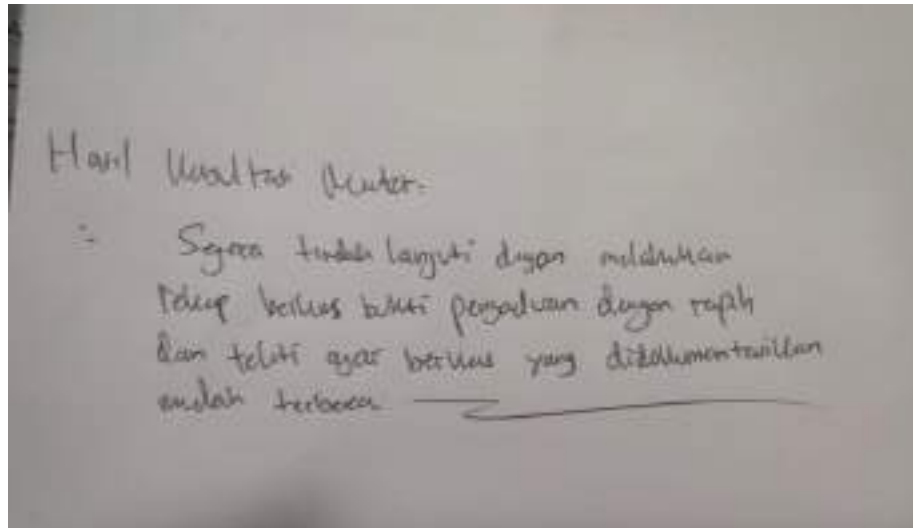 Hasil Konsultasi Mentor.
: Segera tindak lanjuti dengan melakukan
rekap berkas bukti pengaduan dengan rapih
dan teliti agar berkas yang didokumentasikan
mudah terbaca